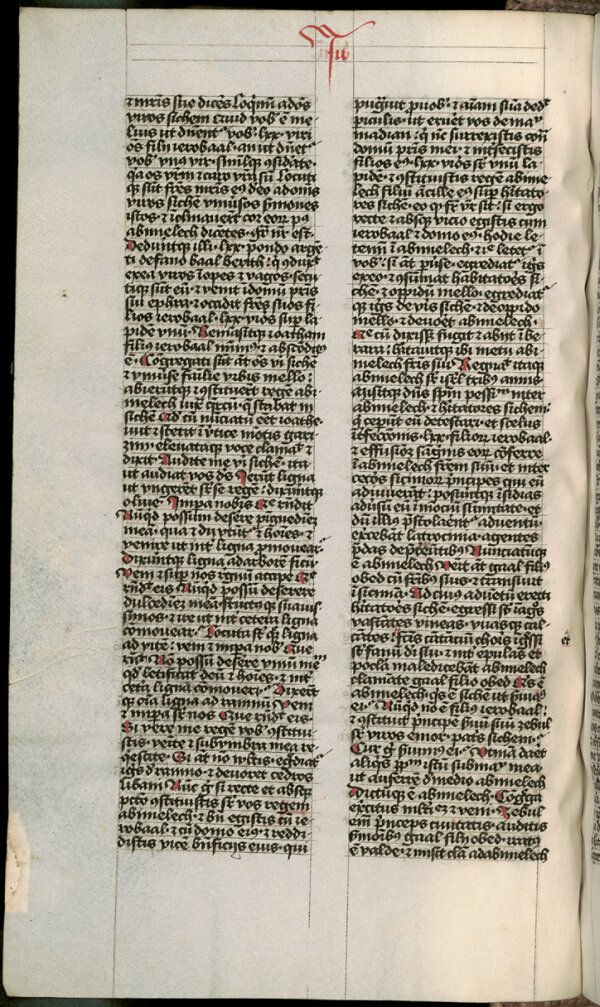 Iu
⁊ mr̄is sue dicēs Loq̄mī ad oēs
viros sichem Quid vob̄ ē me
lius ut dn̄ent᷑ vob̄ lxx viri
oēs filij ierobaal · an ut dn̄et᷑
vob̄ vn᷒ vir · simulq̨ ꝯsid̾ate
qꝛ os vr̄m ⁊ caro vr̄a sū Locuti
q̨ sūt frēs mr̄is ei᷒ de eo ad om̄s
viros sichē vniūsos s̾mones
istos · ⁊ īclinauer̄t cor eoꝝ p᷒
abimelech dicētes · fr̄ nr̄ est ·
Deduntq̨ illi · lxx · pondo argē
ti de fano baal berith : q̨ ꝯdux̾
ex ea viros īopes ⁊ vagos · secu
tiq̨ sūt eū · ⁊ venit ī domū pr̄is
sui ephra · ⁊ occidit frēs suos fi
lios ierobaal · lxx · viros suꝑ la
pidē vnū · Remāsitq̨ ioatham
fili᷒ ierobaal mīm᷒ · ⁊ abscōdit᷒
ē · Cōgregati sūt āt oēs vi sichē
⁊ vniūse fa᷒ilie vrbis mello :
abierūtq̨ ⁊ ꝯstituer̄t regē abi
melech iux̾ q̾rcū · q̄ stabat in
sichē Qd̄ cū nūciatū eēt ioathe
iuit ⁊ stetit ī v̾tice mōtis gari
zim · eleuataq̨ voce clamā᷑ ⁊
dixit · Audite me vi sichē · ita
ut audiat vos ds̄ Ier̄ūt ligna
ut vngerēt sr̄ se regē : dixer̄untq̨
oliue Imꝑa nobis Q̄ r̄ndit
Nūqd̄ possum desere pinguedīez
meā · qua ⁊ dij vtūt᷑ ⁊ hoīes · ⁊
venire ut int̾ ligna ꝓmouear
Dixerūtq̨ ligna ad arborē ficū
Veni ⁊ suꝑ nos regnū accipe Q̄
r̄ndit eis Nūqd̄ possū deserere
dulcedinē meā · fructusq̨ suauis
simos · ⁊ ire ut int̾ cetera ligna
comouear · Locuta sūt q̨ ligna
ad vitē : veni ⁊ impa nob̄ Que
r̄ndit Nō possū desere vinū meū
qd̄ letificat deū ⁊ hoīes · ⁊ int̾
cetera ligna comoueri · Dixer̄t
q̨ oīa ligna ad ramnū Veni
⁊ imꝑa sr̄ nos Que r̄ndit eis ·
Si vere me regē vob̄ ꝯstitui
stis · venite ⁊ sub vmbra mea re
qescite · Si āt nō vltis · egrediat᷑
igīs d̾ ranno · ⁊ deuoret cedros
libani · Nūc g̾ si recte ⁊ absq̨
pctō ꝯstituistis sr̄ vos regem
abimelech · ⁊ bn̄ egistis cū ie
robaal · ⁊ cū domo ei᷒ · ⁊ reddi
distis vicē bn̄ficijs eius · qui
pug᷒uit ꝓ uob̄ · ⁊ aīam suā ded̾
ꝑiculis · ut erueret vos de manu
madian : q̄ nc̄ surrexistis cont̾
domū pr̄is mei · ⁊ int̾fecistis
filios ei᷒ · lxx · viros sr̄ vnū la
pidē : ⁊ ꝯstituistis regē abime
lech filiū ācille ei᷒ suꝑ hītato
res sichē · eo q̨ fr̄ vr̄ sit : si ergo
recte ⁊ absq̨ vicio egistis cum
ierobaal ⁊ domo ei᷒ · hodie le
temī ī abimelech · ⁊ ille letet᷑ ī
vob̄ : sī āt ꝑuse · egrediat᷑ igīs
ex eo · ⁊ ꝯsumat habitatores si
chē · ⁊ oppidū mello · egrediat᷑
q̨ igīs de viris sichē · ⁊ de oppido
mello · ⁊ deuoret abimelech ·
Q̄ cū dixisset fugit ⁊ abijt ī be
rara : hītauitq̨ ibi metu abi
melech fr̄is sui · Regnaū itaq̨
abimelech sr̄ isrl̄ tribus annis ·
misitq̨ dn̄s spm̄ pessimū inter
abimelech · ⁊ hītatores sichem :
q̨ ceꝑūt eū detestari · ⁊ scelus
īt̾fecconis · lxx · filioꝝ ierobaal ·
⁊ effusionē sāgīnis eoꝝ cōferre
ī abimelech frēm suū · ⁊ in ceteros sicimoꝝ p̄ncipes qui eū
adiuuerāt : posuer̄ūtq̨ īsidias
adu̾sū eū ī mōtiū sumitate · ⁊
dū illi᷒ p̄stolarent᷑ aduentū ·
exc̾ebāt latrocinia · agentes
p̄das de p̄t̾eūtib᷒ Nunciatūq̨
ē abimelech Venit āt gaal fili᷒
obed cū fr̄ib᷒ suis · ⁊ transiuit
ī sicimā · Ad cui᷒ aduētū erecti
hītatores sichē · egressi sr̄ ī agros
vastātes vineas · vuasq̨ cal
cātes : fc̄is cātātiū choris īgressi
sr̄ fanū di sui · ⁊ int̾ epulas ⁊
pocla maledicebāt abimelech
clamāte gaal filio obed Qs ē
abimelech · ⁊ q̄s ē sichē ut ser̄uiam᷒
ei · Nūqd̄ nō ē fili᷒ ierobaal :
⁊ ꝯstituit p̄ncipē suū zebul
sr̄ viros emor pat̾s sichem ·
Cur g̾ s̾uim᷒ ei · Vtinā daret
aliqs pplm̄ istū sub manu mea ·
ut auferrē de medio abimelech
Dictūq̨ ē abimelech · Cōgrega
ex̾citus mltitudinē ⁊ veni · Zebul
enī p̄nceps ciuitatis · auditis
s̾monib᷒ gaal filij obed · iratus
ē valde · ⁊ misit clā ad abimelech